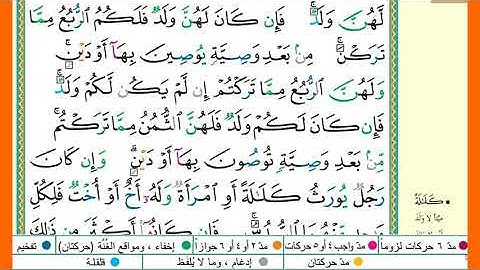 لَّهُنَّ وَلَدٌ ۚ فَإِن كَانَ لَهُنَّ وَلَدٌ فَلَكُمُ ٱلرُّبُعُ مِمَّا
تَرَكْنَ ۚ مِنۢ بَعْدِ وَصِيَّةٍ يُوصِينَ بِهَآ أَوْ دَيْنٍ ۚ
وَلَهُنَّ ٱلرُّبُعُ مِمَّا تَرَكْتُمْ إِن لَّمْ يَكُن لَّكُمْ وَلَدٌ ۚ
فَإِن كَانَ لَكُمْ وَلَدٌ فَلَهُنَّ ٱلثُّمُنُ مِمَّا تَرَكْتُم ۚ
مِّنۢ بَعْدِ وَصِيَّةٍ تُوصُونَ بِهَآ أَوْ دَيْنٍ ۗ وَإِن كَانَ
رَجُلٌ يُورَثُ كَلَٰلَةً أَوِ ٱمْرَأَةٌ وَلَهُۥٓ أَخٌ أَوْ أُخْتٌ فَلِكُلِّ
فَإِن كَانُوٓا۟ أَكْثَرَ مِن ذَٰلِكَ
كَلَٰلَةً
مدّ ٦ حركات لزوماً مدّ ٢ أو ٤ أو ٦ جوازاً إخفاء ، ومواقع الغُنَّة (حركتان) تفخيم
مدّ واجب ٤ أو ٥ حركات مدّ حركتان إدغام ، وما لا يُلفظ قلقلة